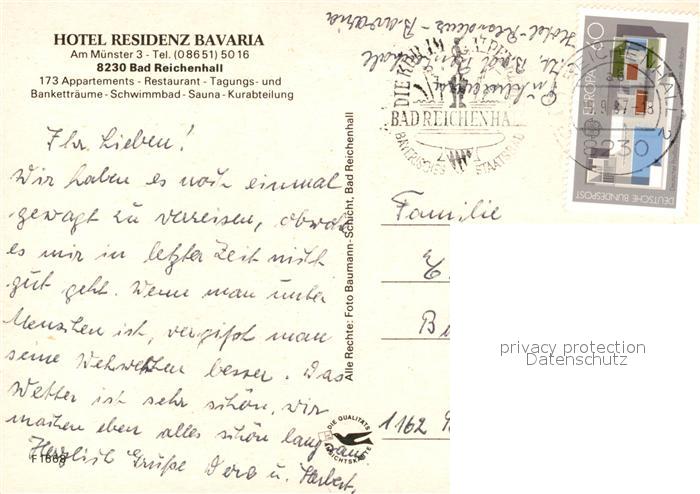 HOTEL RESIDENZ BAVARIA
Am Münster 3 - Tel. (08651) 5016
8230 Bad Reichenhall
173 Appartements - Restaurant - Tagungs- und
Banketträume - Schwimmbad - Sauna - Kurabteilung
Ihr Lieben!
Wir haben es noch einmal
gewagt zu verreisen, obwohl
es mir in letzter Zeit nicht
gut geht. Wenn man unter
Menschen ist, vergißt man
seine Wehwehchen besser. Das
Wetter ist sehr schön, wir
machen eben alles schön langsam.
Herzlich Grüße Dora u. Herbert.
F 1868
Alle Rechte: Foto Baumann-Schicht, Bad Reichenhall
DIE QUALITÄTS
ANSICHTSKARTE
Hotel-Residenz-Bavaria
Bad
BAD REICHENHALL
BAYERISCHES STAATSBAD
EUROPA
80
DEUTSCHE BUNDESPOST
8230
Familie
E
B
1162
privacy protection
Datenschutz